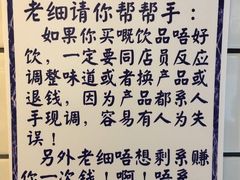 老细请你帮帮手：
如果你买嘅饮品唔好
饮，一定要同店员反应
调整味道或者换产品或
退钱，因为产品都系人
手现调，容易有人为失
误！
另外老细唔想剩系赚
你一次钱！啊！唔系